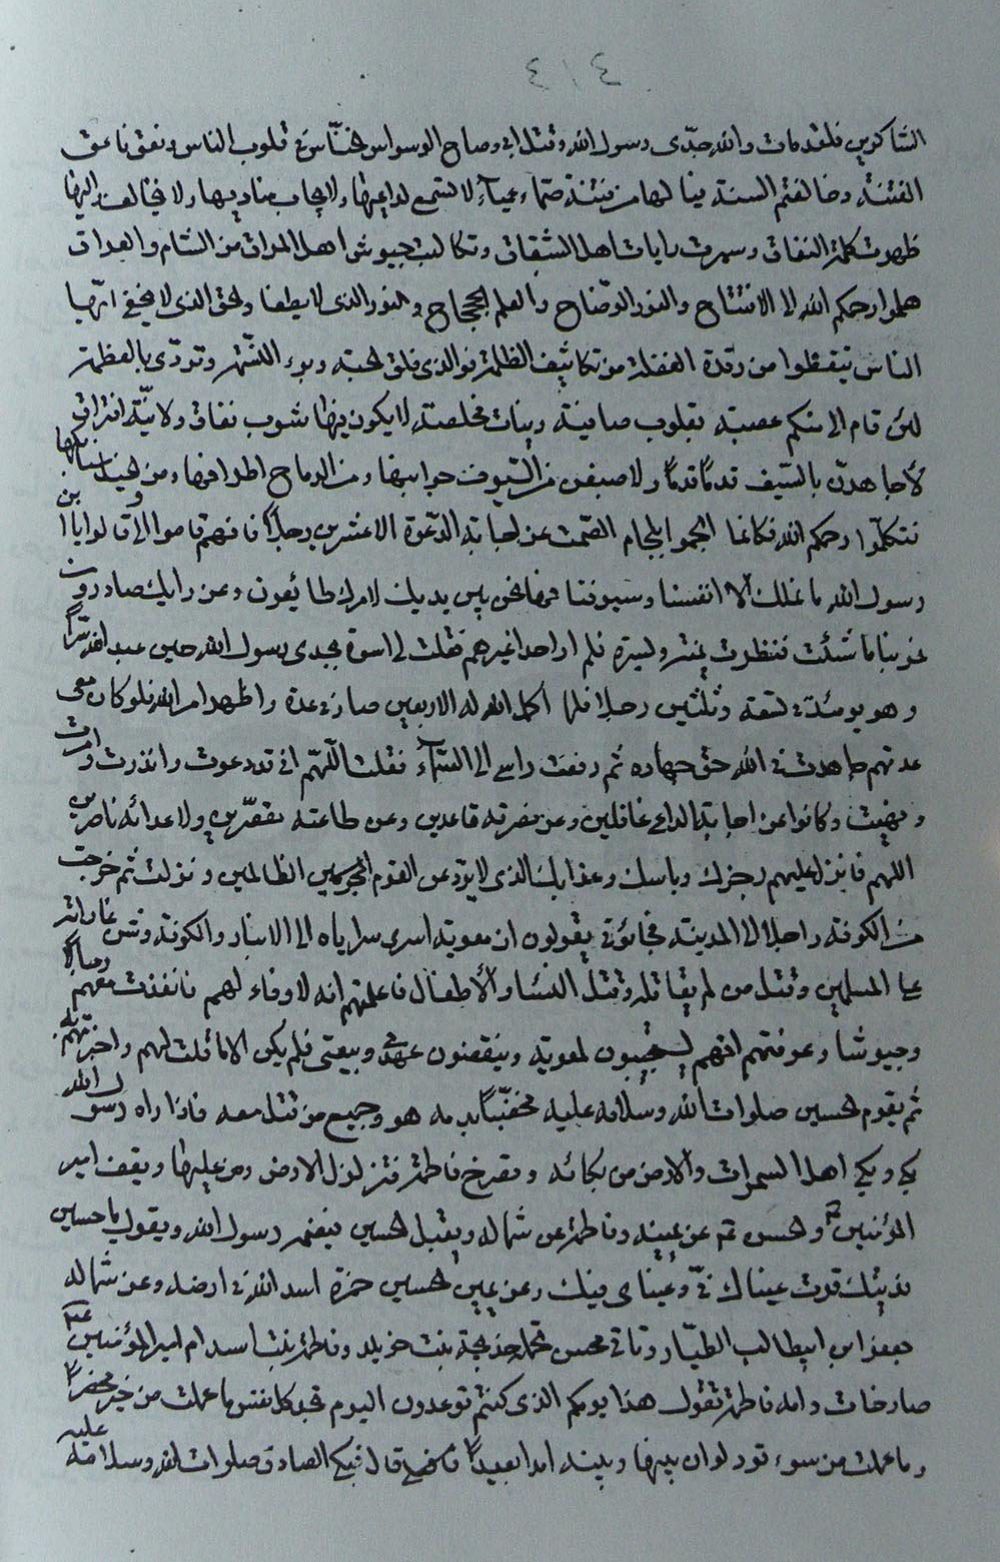 ٤١٤
الشاكرين فلقد مات والله جدّى رسول الله وقتل ابى وصاح الوسواس الخنّاس فى قلوب الناس ونعق ناعق
الفتنة وخالفتم السنة فيا لها من فتنة صمّاء عمياء لا يسمع لداعيها ولا يجاب مناديها ولا يخالف واليها
ظهرت كلمة النفاق وسيرت رايات اهل الشقاق وتكالبت جيوش اهل المراق من الشام والعراق
هلموا رحمكم الله الى الافتتاح والنور الوضّاح والعلم الجحجاح والنور الذى لا يطفا والحق الذى لا يخفى ايّها
الناس تيقظوا من رقدة الغفلة من تكاثيف الظلمة فوالذى فلق الحبة وبرء النسمة وتردّى بالعظمة
لئن قام الى منكم عصبة بقلوب صافية ونيات مخلصة لا يكون فيها شوب نفاق ولا نيّة افتراق
لأجاهدنّ بالسّيف قدمًا قدمًا ولاضيقن من السّيوف جوانبها ومن الرماح اطرافها ومن الخيل سنابكها
فتكلّموا رحمكم الله فكانما الجموا بلجام الصّمت عن اجابة الدّعوة الا عشرين رجلاً فانهم قاموا الىّ وقالوا يا بن
رسول الله ما نملك الا انفسنا وسيوفنا فها نحن بين يديك لامرك طائعون وعن رايك صادرون
فمرنا بما شئت فنظرت يمنة ويسرة فلم ار احدا غيرهم فقلت لى اسوة بجدى رسول الله حين عبد الله سرّاً
وهو يومئذ فى تسعة وثلثين رجلا فلما اكمل الله له الاربعين صار فى عدة واظهر امر الله فلو كان معى
عدتهم جاهدت فى الله حق جهاده ثم رفعت راسى الى السّماء فقلت اللّهم انى قد دعوت وانذرت وامرت
ونهيت وكانوا عن اجابة الداعى غافلين وعن نصرته قاعدين وعن طاعته مقصّرين ولاعدائه ناصرين
اللهم فانزل عليهم رجزك وباسك وعذابك الذى لا يرد عن القوم المجرمين الظالمين ونزلت ثم خرجت
من الكوفة راحلا الى المدينة فجاؤنى يقولون ان معوية اسرى سراياه الى الانبار والكوفة وشن غاراته
على المسلمين وقتل من لم يقاتله وقتل النساء والأطفال فاعلمتهم انه لا وفاء لهم فانفذت معهم رجالاً
وجيوشا وعرفتهم انهم يستجيبون لمعوية وينقضون عهدى وبيعتى فلم يكن الا ما قلت لهم واخبرتهم به
ثم يقوم الحسين صلوات الله وسلامه عليه مخضّباً بدمه هو وجميع من قتل معه فاذا راه رسول الله
بكى وبكى اهل السموات والارض من بكائه وتصرخ فاطمة فتزلزل الارض ومن عليها ويقف امير
المؤمنين والحسن عن يمينه وفاطمة عن شماله ويقبل الحسين فيضمه رسول الله ويقول يا حسين
فديتك قرت عيناك فىّ وعيناى فيك وعن يمين الحسين حمزة اسد الله فى ارضه وعن شماله
جعفر ابن ابيطالب الطيّار وتاتى محسن تحمله خديجة بنت خويلد وفاطمة بنت اسد ام امير المؤمنين
صارخات وامه فاطمة تقول هذا يومكم الذى كنتم توعدون اليوم تجد كل نفس ما عملت من خير محضراً
وما عملت من سوء تود لو ان بينها وبينه امدا بعيداً قال فبكى الصادق صلوات الله وسلامه عليه